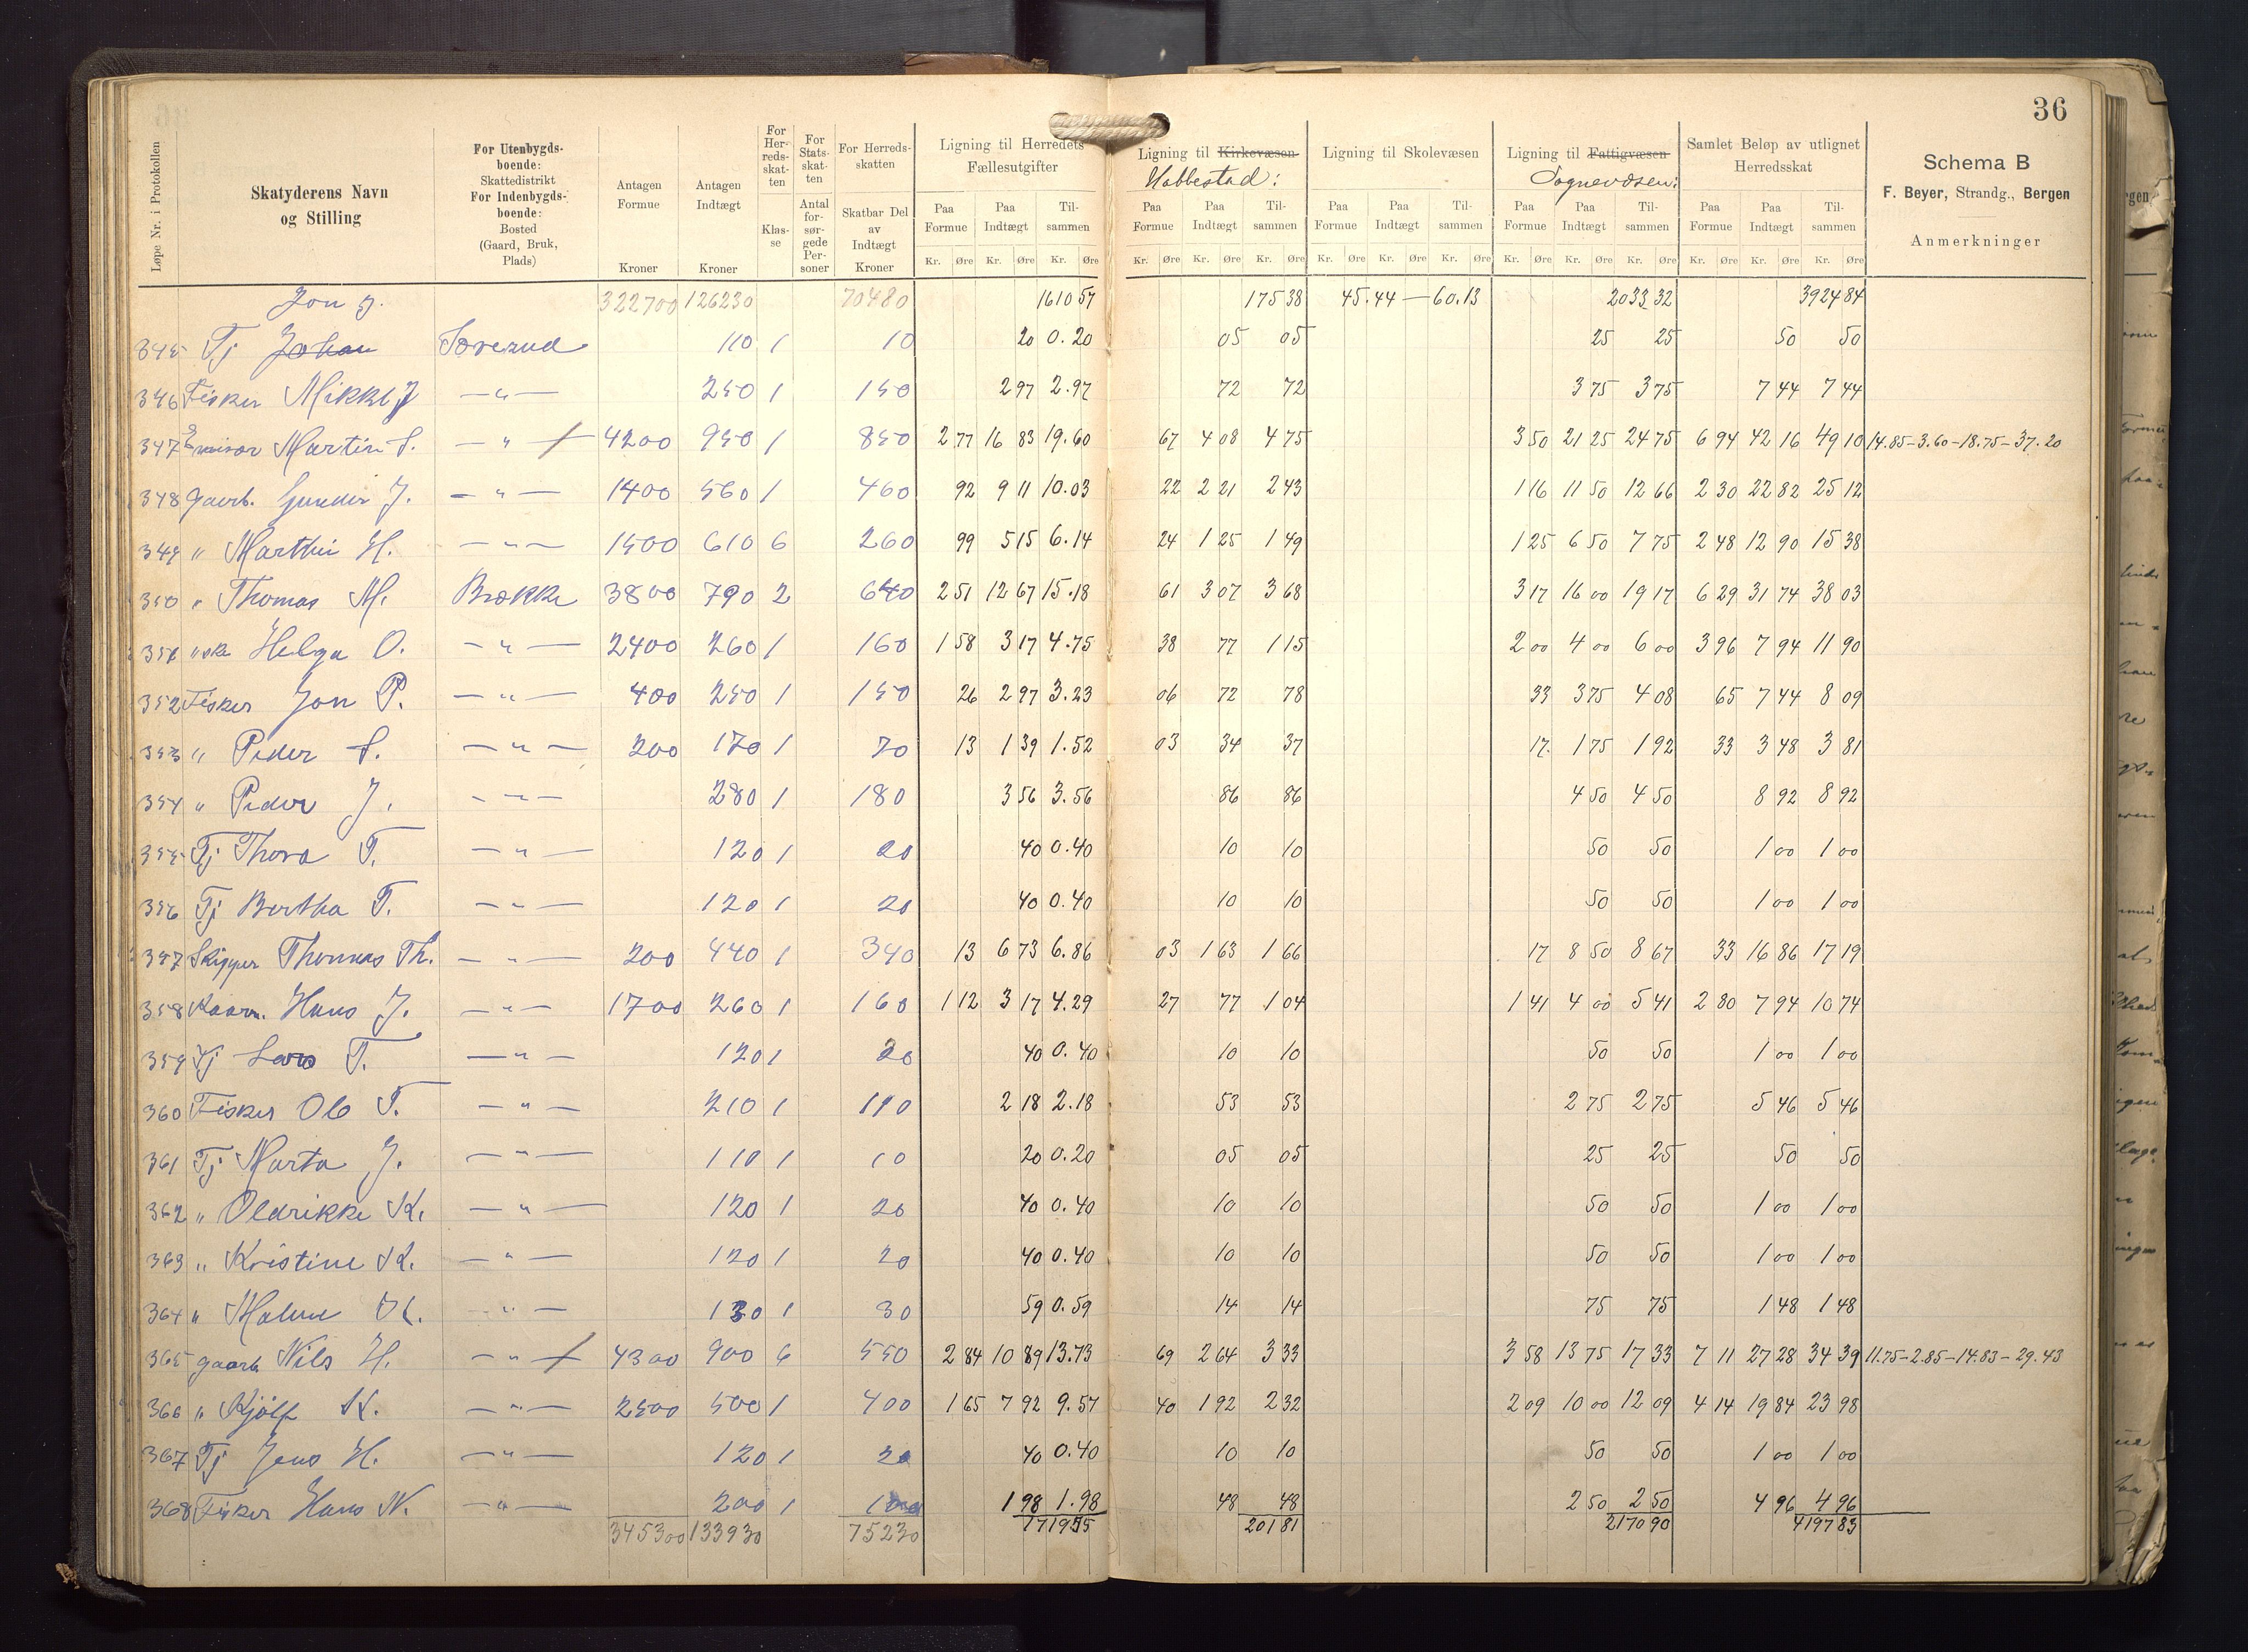 36
Løpe Nr. i Protokollen
Skatyderens Navn og Stilling
For Utenbygds-boende: Skattedistrikt For Indenbygds-boende: Bosted (Gaard, Bruk, Plads)
Antagen Formue Kroner
Antagen Indtægt Kroner
For Her-reds-skat-ten Klas-se
For Stats-skat-ten Antal for-sør-gede Per-soner
For Herreds-skatten Skatbar Del av Indtægt Kroner
Ligning til Herredets Fællesutgifter
Ligning til Kirkevæsen Habbestad:
Ligning til Skolevæsen
Ligning til Fattigvæsen Sognevæsen:
Samlet Beløp av utlignet Herredsskat
Schema B
F. Beyer, Strandg., Bergen
Anmerkninger
Paa Formue Paa Indtægt Til-sammen Paa Formue Paa Indtægt Til-sammen Paa Formue Paa Indtægt Til-sammen Paa Formue Paa Indtægt Til-sammen Paa Formue Paa Indtægt Til-sammen
Kr. Øre Kr. Øre Kr. Øre Kr. Øre Kr. Øre Kr. Øre Kr. Øre Kr. Øre Kr. Øre Kr. Øre Kr. Øre Kr. Øre Kr. Øre Kr. Øre Kr. Øre
322700 126230 70480 1610 57 175 38 45.44 — 60.13 2033 32 3924 84
345 Tj Johan 110 1 10 20 0.20 05 05 25 25 50 50
346 Fisker Mikkel J — " — 250 1 150 2 97 2.97 72 72 3 75 3 75 7 44 7 44
347 Martin S. — " — 4200 950 1 850 2 77 16 83 19.60 67 4 08 4 75 3 50 21 25 24 75 6 94 42 16 49 10 14.85-3.60-18.75-37.20
348 Gaarb. Gunder J. — " — 1400 560 1 460 92 9 11 10.03 22 2 21 2 43 1 16 11 50 12 66 2 30 22 82 25 12
349 " Marthin H. — " — 1500 610 6 260 99 5 15 6.14 24 1 25 1 49 1 25 6 50 7 75 2 48 12 90 15 38
350 " Thomas M. Brække 3800 790 2 640 2 51 12 67 15.18 61 3 07 3 68 3 17 16 00 19 17 6 29 31 74 38 03
351 " ske Helga O. — " — 2400 260 1 160 1 58 3 17 4.75 38 77 1 15 2 00 4 00 6 00 3 96 7 94 11 90
352 Fisker Jon P. — " — 400 250 1 150 26 2 97 3.23 06 72 78 33 3 75 4 08 65 7 44 8 09
353 " Peder S. — " — 200 170 1 70 13 1 39 1.52 03 34 37 17 1 75 1 92 33 3 48 3 81
354 " Peder J. — " — 280 1 180 3 56 3.56 86 86 4 50 4 50 8 92 8 92
355 Tj Thora T. — " — 120 1 20 40 0.40 10 10 50 50 1 00 1 00
356 Tj Bertha T. — " — 120 1 20 40 0.40 10 10 50 50 1 00 1 00
357 Skipper Thomas Th. — " — 200 440 1 340 13 6 73 6.86 03 1 63 1 66 17 8 50 8 67 33 16 86 17 19
358 Kaarm. Hans J. — " — 1700 260 1 160 1 12 3 17 4.29 27 77 1 04 1 41 4 00 5 41 2 80 7 94 10 74
359 Tj Lars T. — " — 120 1 20 40 0.40 10 10 50 50 1 00 1 00
360 Fisker Ole T. — " — 210 1 110 2 18 2.18 53 53 2 75 2 75 5 46 5 46
361 Tj Marta J. — " — 110 1 10 20 0.20 05 05 25 25 50 50
362 " Oldrikke K. — " — 120 1 20 40 0.40 10 10 50 50 1 00 1 00
363 " Kristine K. — " — 120 1 20 40 0.40 10 10 50 50 1 00 1 00
364 " Malene K. — " — 130 1 30 59 0.59 14 14 75 75 1 48 1 48
365 Gaarb Nils H. — " — 4300 900 6 550 2 84 10 89 13.73 69 2 64 3 33 3 58 13 75 17 33 7 11 27 28 34 39 11.75-2.85-14.83-29.43
366 " Kjølf K. — " — 2500 500 1 400 1 65 7 92 9.57 40 1 92 2 32 2 09 10 00 12 09 4 14 19 84 23 98
367 Tj Jens H. — " — 120 1 20 40 0.40 10 10 50 50 1 00 1 00
368 Fisker Hans N. — " — 200 1 100 1 98 1.98 48 48 2 50 2 50 4 96 4 96
345300 133930 75230 1719 55 201 81 2170 90 4197 83